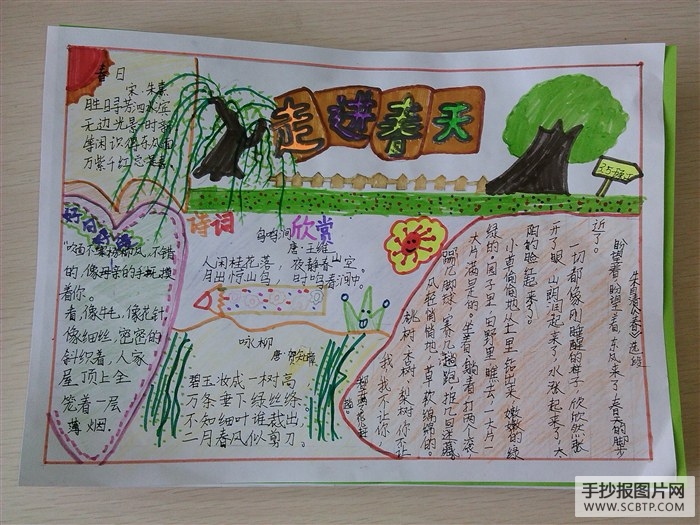 走进春天
春日
宋·朱熹
胜日寻芳泗水滨
无边光景一时新
等闲识得东风面
万紫千红总是春
好句
"吹面不寒杨柳风",不错
的,像母亲的手抚摸
着你。
看,像牛毛,像花针,
像细丝,密密的
斜织着,人家
屋顶上全
笼着一层
薄烟。
诗词欣赏
鸟鸣涧
唐·王维
人闲桂花落,夜静春山空。
月出惊山鸟,时鸣春涧中。
咏柳
唐·贺知章
碧玉妆成一树高
万条垂下绿丝绦。
不知细叶谁裁出
二月春风似剪刀。
朱自清《春》选段
盼望着,盼望着,东风来了,春天的脚步
近了。
一切都像刚睡醒的样子,欣欣然张
开了眼。山朗润起来了,水涨起来了,太
阳的脸红起来了。
小草偷偷地从土里钻出来,嫩嫩的,绿
绿的。园子里,田野里,瞧去,一大片一
大片满是的。坐着,躺着,打两个滚,
踢几脚球,赛几趟跑,捉几回迷藏。
风轻悄悄地,草软绵绵的。
桃树、杏树、梨树,你不让
我,我不让你,
手抄报图片网
WWW.SCBTP.COM